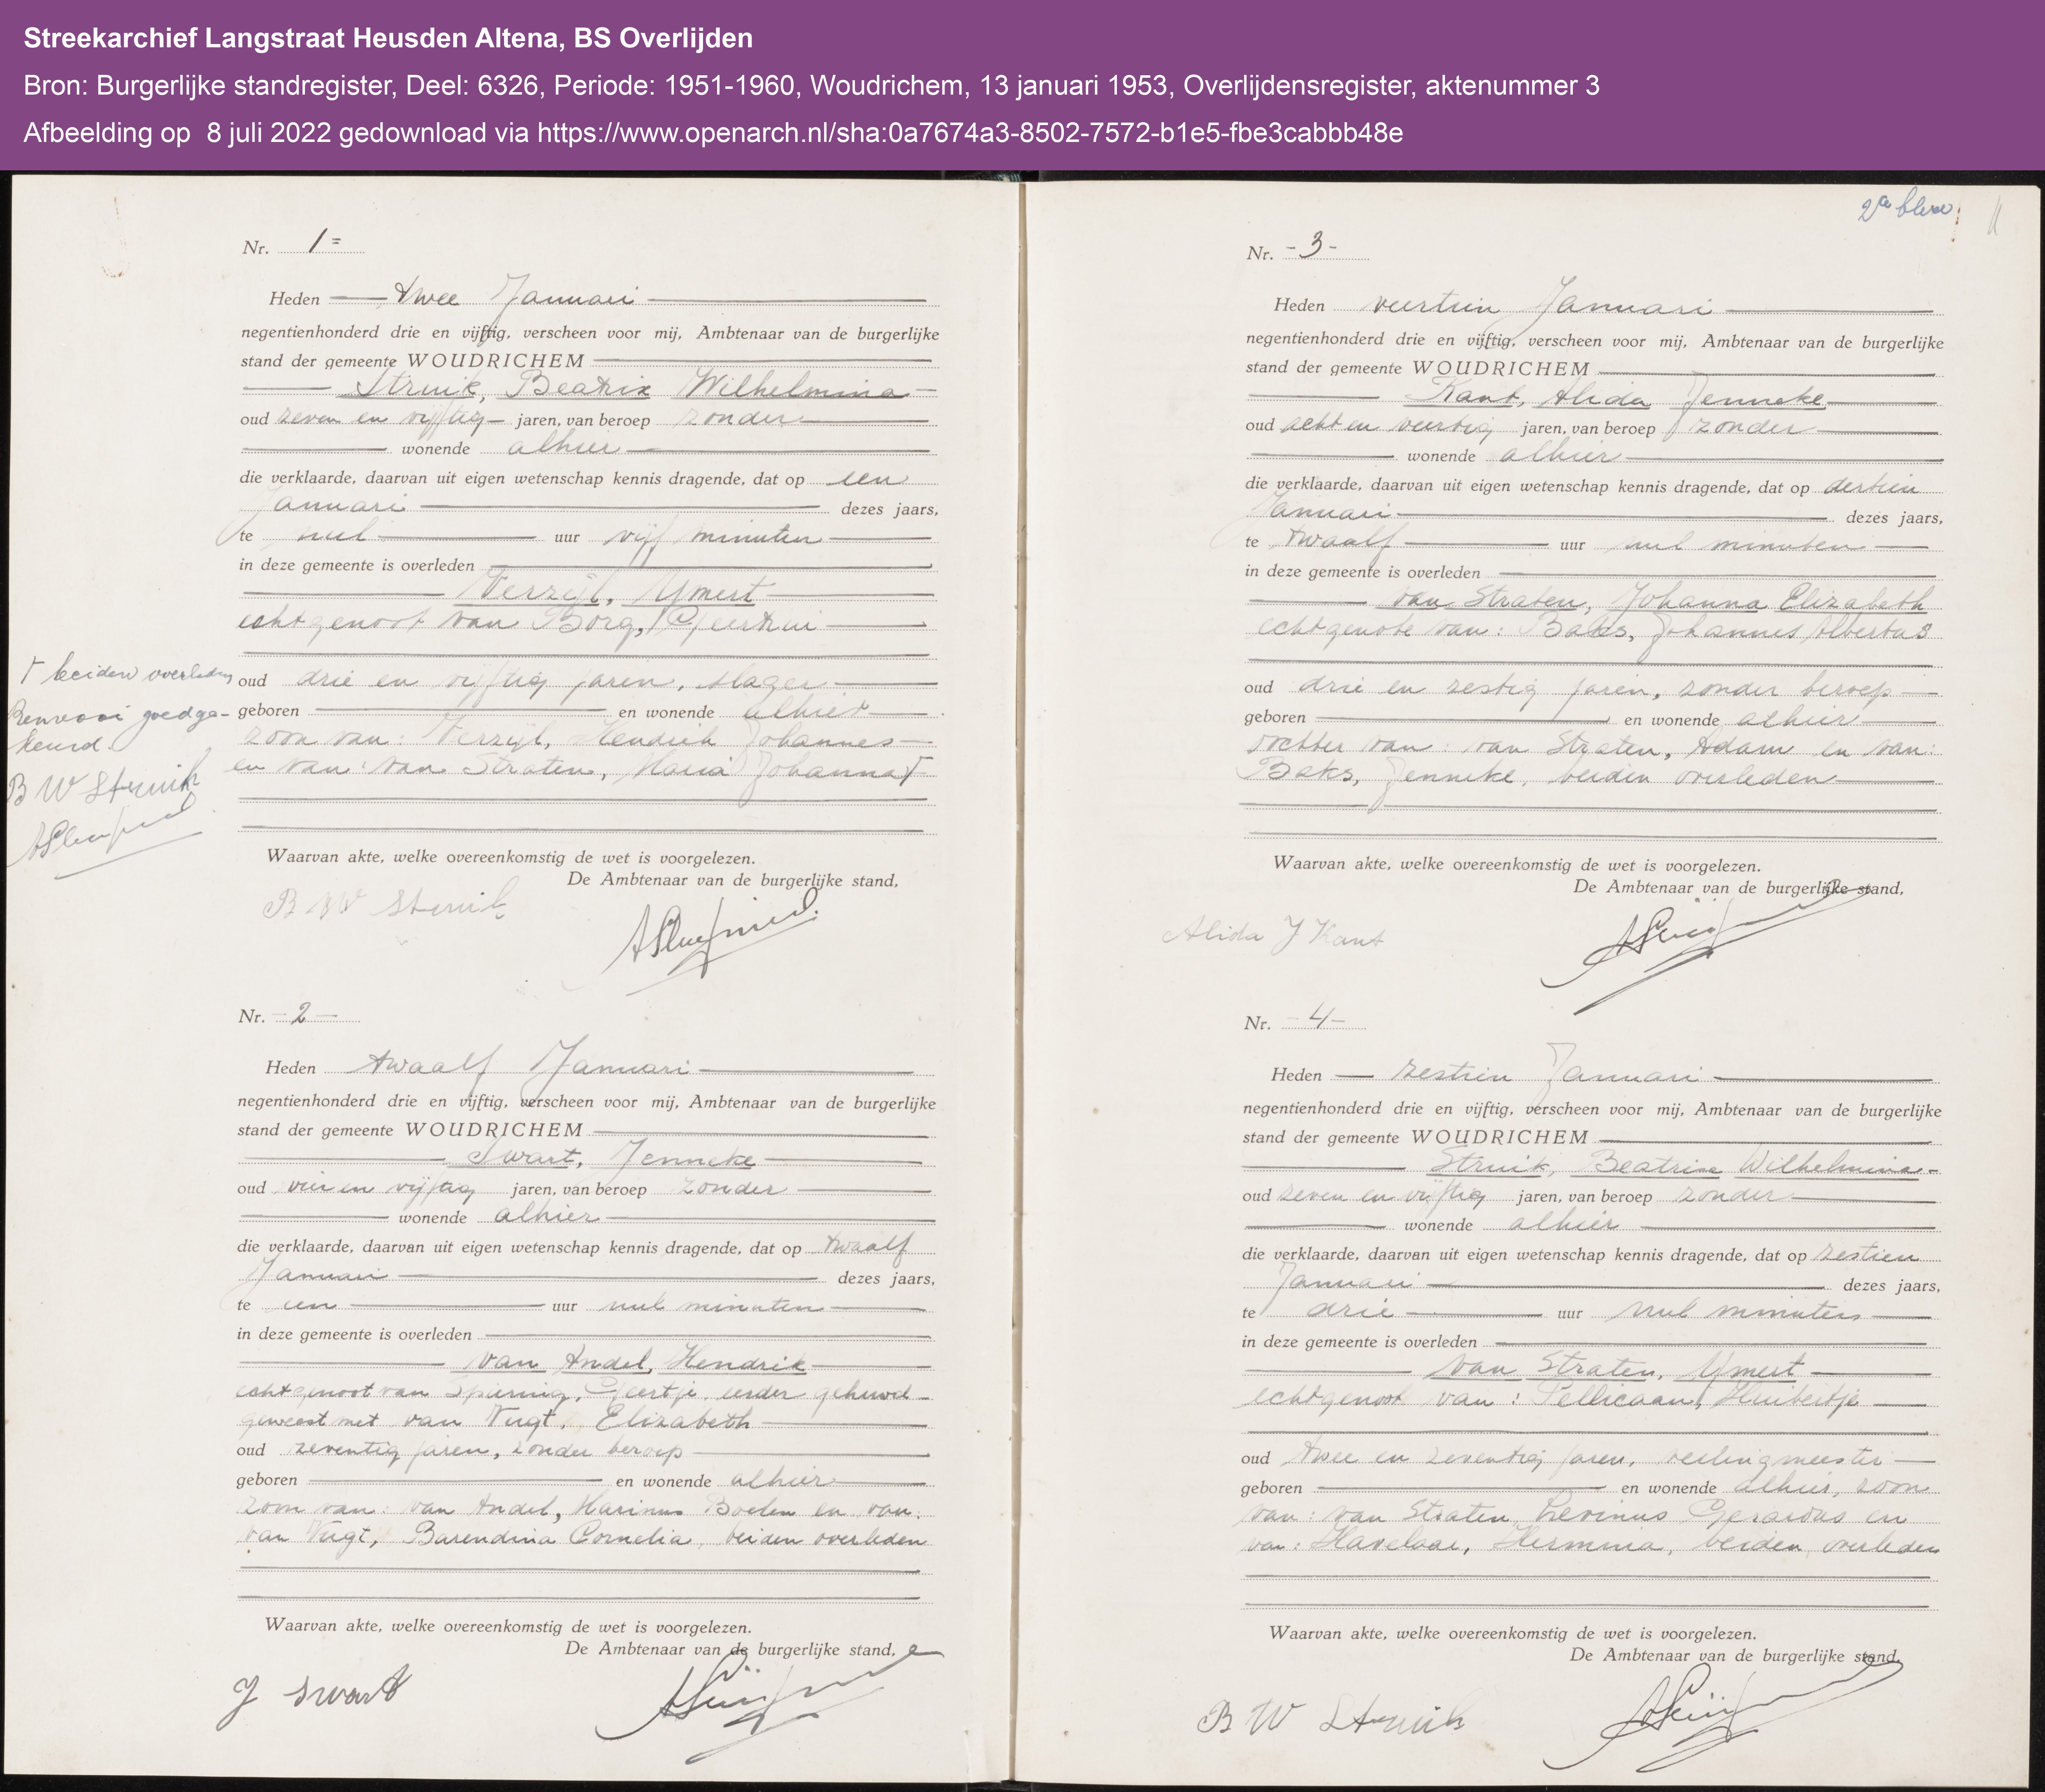 Streekarchief Langstraat Heusden Altena, BS Overlijden
Bron: Burgerlijke standregister, Deel: 6326, Periode: 1951-1960, Woudrichem, 13 januari 1953, Overlijdensregister, aktenummer 3
Afbeelding op 8 juli 2022 gedownload via https://www.openarch.nl/sha:0a7674a3-8502-7572-b1e5-fbe3cabbb48e
Nr. 1 =
Heden twee Januari
negentienhonderd drie en vijftig, verscheen voor mij, Ambtenaar van de burgerlijke
stand der gemeente WOUDRICHEM
Struik, Beatrix Wilhelmina
oud zeven en vijftig jaren, van beroep zonder
wonende alhier
die verklaarde, daarvan uit eigen wetenschap kennis dragende, dat op een
Januari dezes jaars,
te nul uur vijf minuten
in deze gemeente is overleden
Verzijl, Ymert
echtgenoot van Borg,
oud drie en vijftig jaren, slager
geboren en wonende alhier
zoon van: Verzijl, Hendrik Johannes
en van: van Straten, Maria Johanna Γ
Γ beiden overleden
Renvooi goedge-
keurd.
B W Struik
Waarvan akte, welke overeenkomstig de wet is voorgelezen.
De Ambtenaar van de burgerlijke stand,
B W Struik
Nr. - 2 -
Heden twaalf Januari
negentienhonderd drie en vijftig, verscheen voor mij, Ambtenaar van de burgerlijke
stand der gemeente WOUDRICHEM
Swart, Jenneke
oud vier en vijftig jaren, van beroep zonder
wonende alhier
die verklaarde, daarvan uit eigen wetenschap kennis dragende, dat op twaalf
Januari dezes jaars,
te een uur nul minuten
in deze gemeente is overleden
van Andel, Hendrik
echtgenoot van Spiering, Geertje, eerder gehuwd
geweest met van Vugt, Elizabeth
oud zeventig jaren, zonder beroep
geboren en wonende alhier
zoon van: van Andel, Marinus Boelen en van:
van Vugt, Barendina Cornelia, beiden overleden
Waarvan akte, welke overeenkomstig de wet is voorgelezen.
De Ambtenaar van de burgerlijke stand,
J Swart
2e
Nr. - 3 -
Heden veertien Januari
negentienhonderd drie en vijftig, verscheen voor mij, Ambtenaar van de burgerlijke
stand der gemeente WOUDRICHEM
Kant, Alida Jenneke
oud acht en veertig jaren, van beroep zonder
wonende alhier
die verklaarde, daarvan uit eigen wetenschap kennis dragende, dat op dertien
Januari dezes jaars,
te twaalf uur nul minuten
in deze gemeente is overleden
van Straten, Johanna Elizabeth
echtgenote van: Baks, Johannes Albertus
oud drie en zestig jaren, zonder beroep
geboren en wonende alhier
dochter van: van Straten, Adam en van:
Baks, Jenneke, beiden overleden
Waarvan akte, welke overeenkomstig de wet is voorgelezen.
De Ambtenaar van de burgerlijke stand,
Alida J Kant
Nr. - 4 -
Heden zestien Januari
negentienhonderd drie en vijftig, verscheen voor mij, Ambtenaar van de burgerlijke
stand der gemeente WOUDRICHEM
Struik, Beatrix Wilhelmina
oud zeven en vijftig jaren, van beroep zonder
wonende alhier
die verklaarde, daarvan uit eigen wetenschap kennis dragende, dat op zestien
Januari dezes jaars,
te drie uur nul minuten
in deze gemeente is overleden
van Straten, Ymert
echtgenoot van: Pellicaan, Huibertje
oud twee en zeventig jaren, veilingmeester
geboren en wonende alhier, zoon
van: van Straten, Levinus Gerardus en
van: Havelaar, Hermina, beiden overleden
Waarvan akte, welke overeenkomstig de wet is voorgelezen.
De Ambtenaar van de burgerlijke stand,
B W Struik